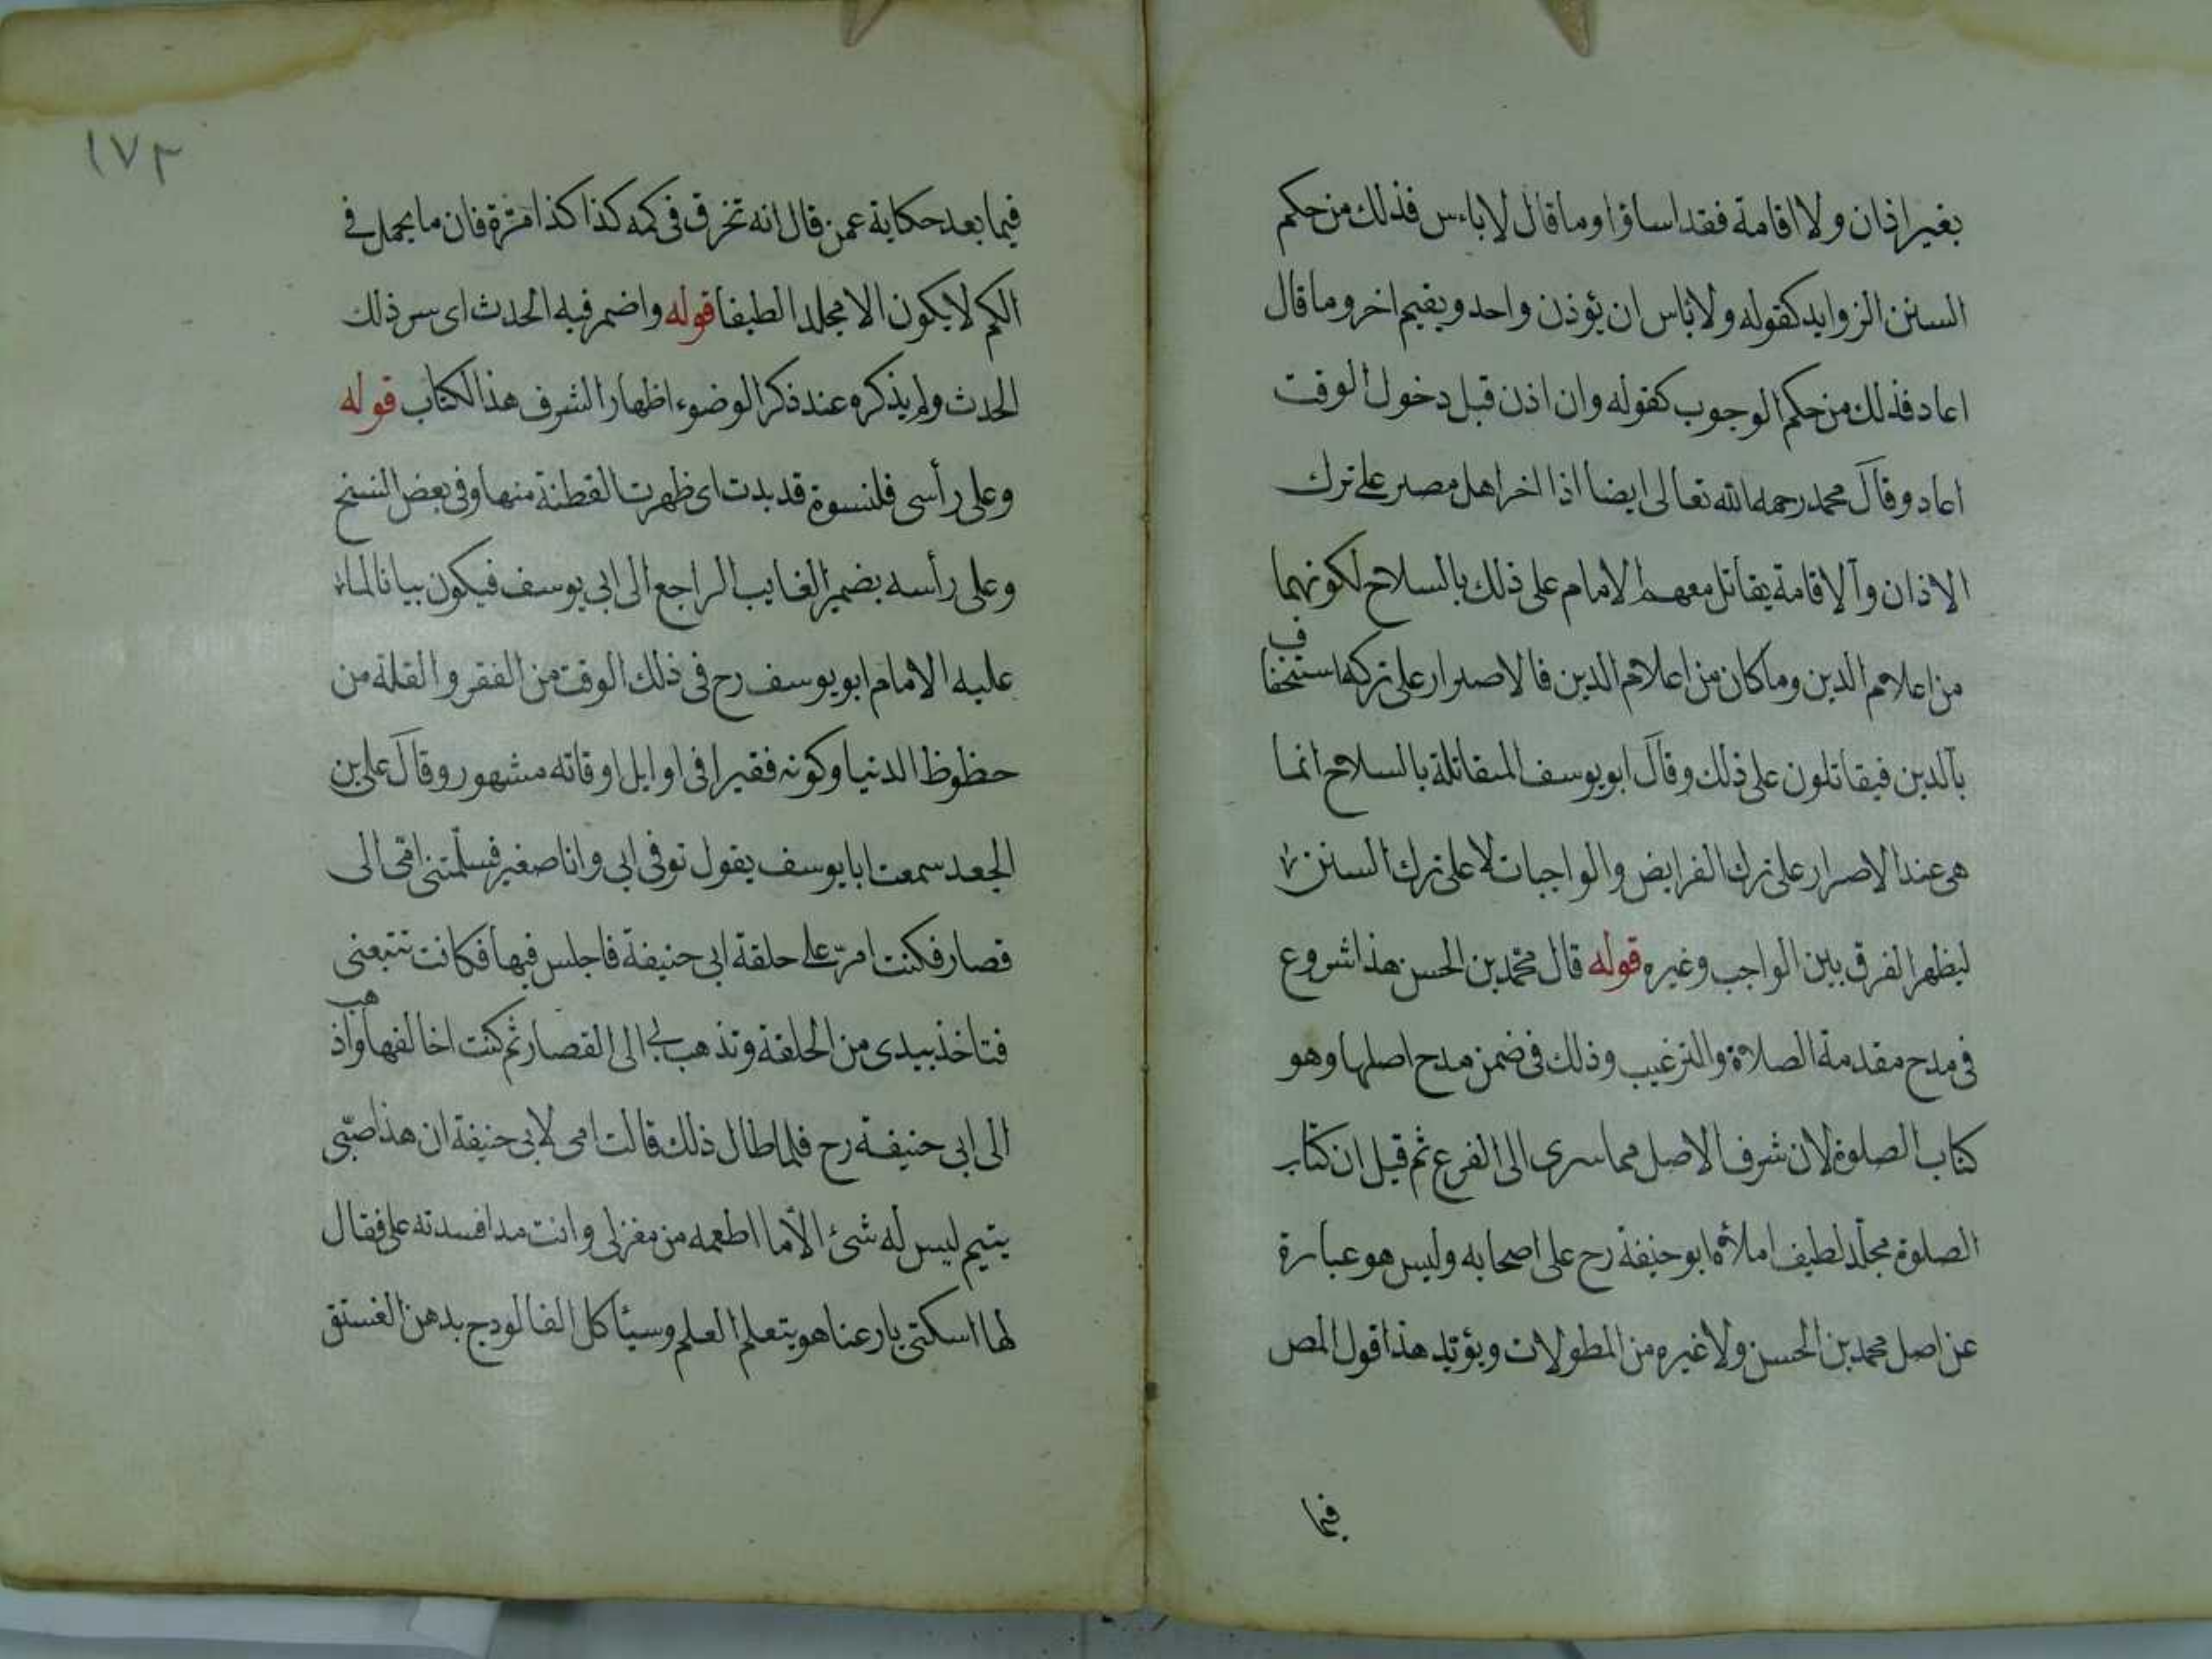 بغير اذان ولا اقامة فقد اساؤا وما قال لا باءس فذلك من حكم
السنن الزوايد كقوله ولا باس ان يؤذن واحد ويقيم اخر وما قال
اعاد فذلك من حكم الوجوب كقوله وان اذن قبل دخول الوقت
اعاد وقال محمد رحمه الله تعالى ايضا اذا اخر اهل مصر على ترك
الاذان والاقامة يقاتل معهم الامام على ذلك بالسلاح لكونهما
من اعلام الدين وما كان من اعلام الدين فالاصرار على تركه استخفاف
بالدين فيقاتلون على ذلك وقال ابو يوسف المقاتلة بالسلاح انما
هى عند الاصرار على ترك الفرايض والواجبات لا على ترك السنن
ليظهر الفرق بين الواجب وغيره قوله قال محمد بن الحسن هذا شروع
فى مدح مقدمة الصلاة والترغيب وذلك فى ضمن مدح اصلها وهو
كتاب الصلوة لان شرف الاصل مما سرى الى الفرع ثم قيل ان كتاب
الصلوة مجلد لطيف املأه ابو حنيفة رح على اصحابه وليس هو عبارة
عن اصل محمد بن الحسن ولا غيره من المطولات ويؤيد هذا قول المص
فيما
١٧٣
فيما بعد حكاية عمن قال انه تخرق فى كمه كذا كذا مرة فان ما يحمل فى
الكم لا يكون الا مجلدا لطيفا قوله واضمر فيه الحدث اى سر ذلك
الحدث ولم يذكره عند ذكر الوضوء اظهارا لشرف هذا الكتاب قوله
وعلى رأسى قلنسوة قد بدت اى ظهرت القطنة منها وفى بعض النسخ
وعلى رأسه بضمير الغايب الراجع الى ابى يوسف فيكون بيانا لما
عليه الامام ابو يوسف رح فى ذلك الوقت من الفقر والقلة من
حظوظ الدنيا وكونه فقيرا فى اوايل اوقاته مشهور وقال على بن
الجعد سمعت ابا يوسف يقول توفى ابى وانا صغير فسلمتنى امى الى
قصار فكنت امر على حلقة ابى حنيفة فاجلس فيها فكانت تتبعنى
فتاخذ بيدى من الحلقة وتذهب بى الى القصار ثم كنت اخالفها واذهب
الى ابى حنيفة رح فلما طال ذلك قالت امى لابى حنيفة ان هذا صبى
يتيم ليس له شئ الا ما اطعمه من مغزلى وانت مد افسدته على فقال
لها اسكتى يا رعنا هو يتعلم العلم وسيأكل الفالودج بدهن الفستق